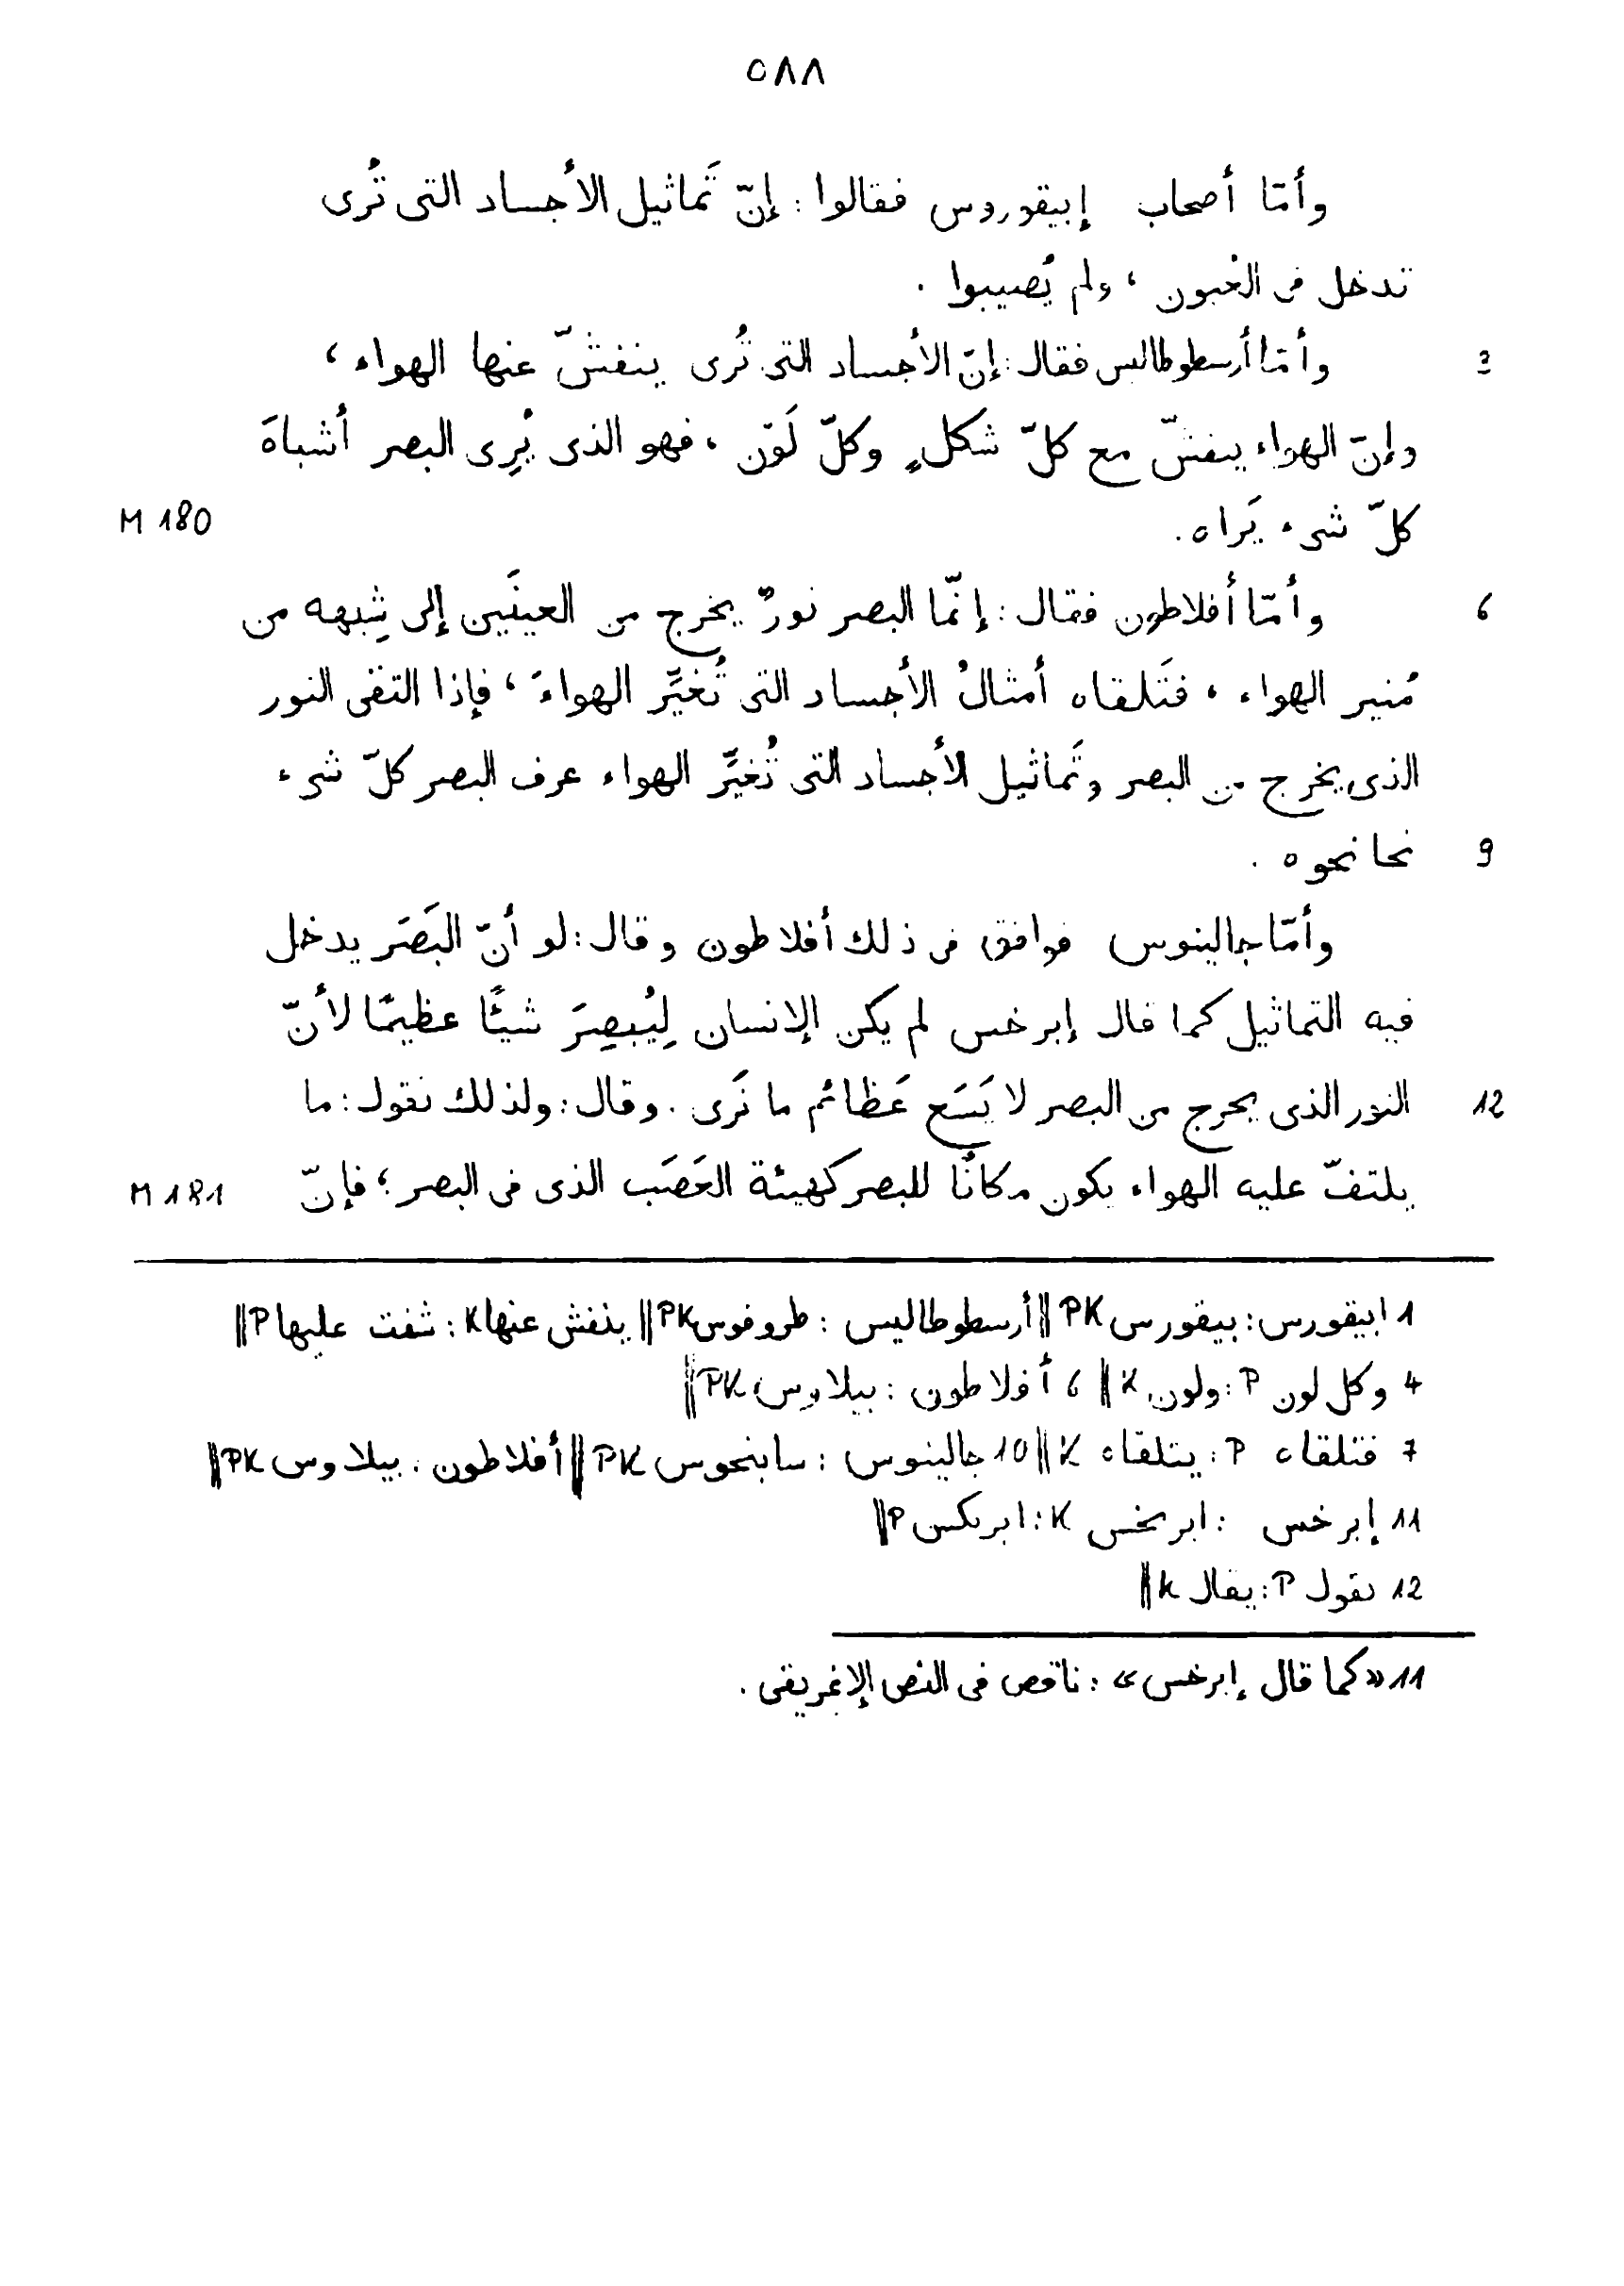 ٥٨٨
وأمّا أصحاب إبيقوروس فقالوا : إنّ تَماثيل الأجساد التى تُرى
تدخل فى العُيون ، ولم يُصيبوا .
3 وأمّا أرسطوطاليس فقال : إنّ الأجساد التى تُرى ينفشّ عنها الهواء ،
وإنّ الهواء ينفشّ مع كلّ شكلٍ وكلّ لَوْن ، فهو الذى يُرِى البصر أشباهَ
كلّ شىء يَراه . M 180
6 وأمّا أفلاطون فقال : إنّما البصر نورٌ يخرج من العينَين إلى شِبهه من
مُنير الهواء ، فتَلقاه أمثالُ الأجساد التى تُغيِّر الهواءَ ، فإذا التقى النور
الذى يخرج من البصر وتَماثيل الأجساد التى تُغيِّر الهواء عرف البصر كلّ شىء
9 نحا نحوه .
وأمّا جالينوس فوافق فى ذلك أفلاطون وقال : لو أنّ البَصَر يدخل
فيه التماثيل كما قال إبرخس لم يكن الإنسان لِيُبصِرَ شيئًا عظيمًا لأنّ
12 النور الذى يخرج من البصر لا يَسَع عَظائم ما نَرى . وقال : ولذلك نقول : ما
يلتفّ عليه الهواء يكون مكانًا للبصر كهيئة العَصَب الذى فى البصر ؛ فإنّ M 181
1 ابيقورس : بيقورس PK || أرسطوطاليس : طروفوس PK || ينفش عنها K : شفت عليها P ||
4 وكل لون P : ولون K || 6 أفلاطون : بيلاوس PK ||
7 فتلقاه P : يتلقاه K || 10 جالينوس : سابنحوس PK || أفلاطون : بيلاوس PK ||
11 إبرخس : ابرىخس K : ابرىكس P ||
12 نقول P : يقال K ||
11 «كما قال إبرخس» : ناقص فى النص الإغريقى .